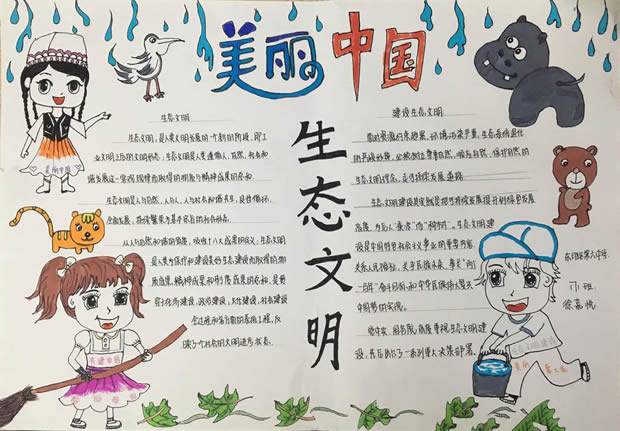 美丽中国
生态文明
生态文明
生态文明，是人类文明发展的一个新的阶段，即工
业文明之后的文明形态；生态文明是人类遵循人、自然、社会和
谐发展这一客观规律而取得的物质与精神成果的总和
生态文明是人与自然、人与人、人与社会和谐共生、良性循环、
全面发展、持续繁荣为基本宗旨的社会形态。
从人与自然和谐的角度，吸收十八大成果的定义：生态文明
是人类为保护和建设美好生态环境而取得的物
质成果、精神成果和制度成果的总和，是贯
穿于经济建设、政治建设、文化建设、社会建设
全过程和各方面的系统工程，反
映了一个社会的文明进步状态。
建设生态文明
面对资源约束趋紧、环境污染严重、生态系统退化
的严峻形势，必须树立尊重自然、顺应自然、保护自然的
生态文明理念，走可持续发展道路
生态文明建设其实就是把可持续发展提升到绿色发展
高度，为后人“乘凉”而“种树”。生态文明建
设是中国特色社会主义事业的重要内容，
关系人民福祉，关乎民族未来，事关“两个
一百年”奋斗目标和中华民族伟大复兴
中国梦的实现。
党中央、国务院高度重视生态文明建
设，先后出台了一系列重大决策部署。
六小班
徐嘉悦
美丽中国
生态文明建设
美丽